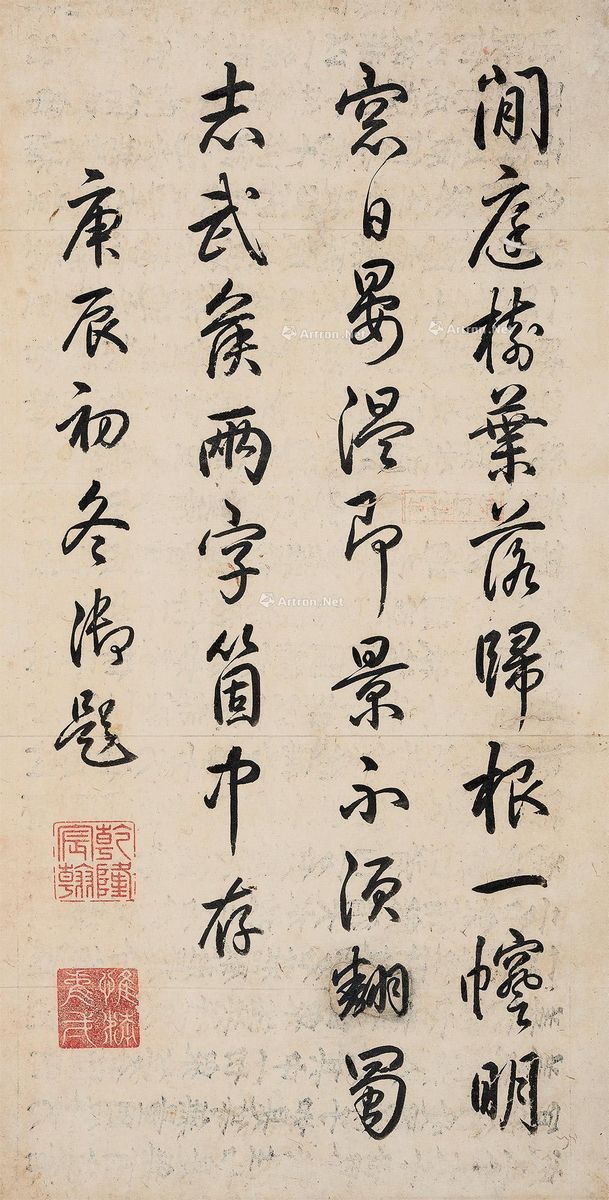 閒庭樹葉落歸根一明
窓日晏溫即景不須翻蜀
志武侯兩字箇中存
庚辰初冬御題
乾隆宸翰
Artron.Net
Artron.Net
Artron.Net